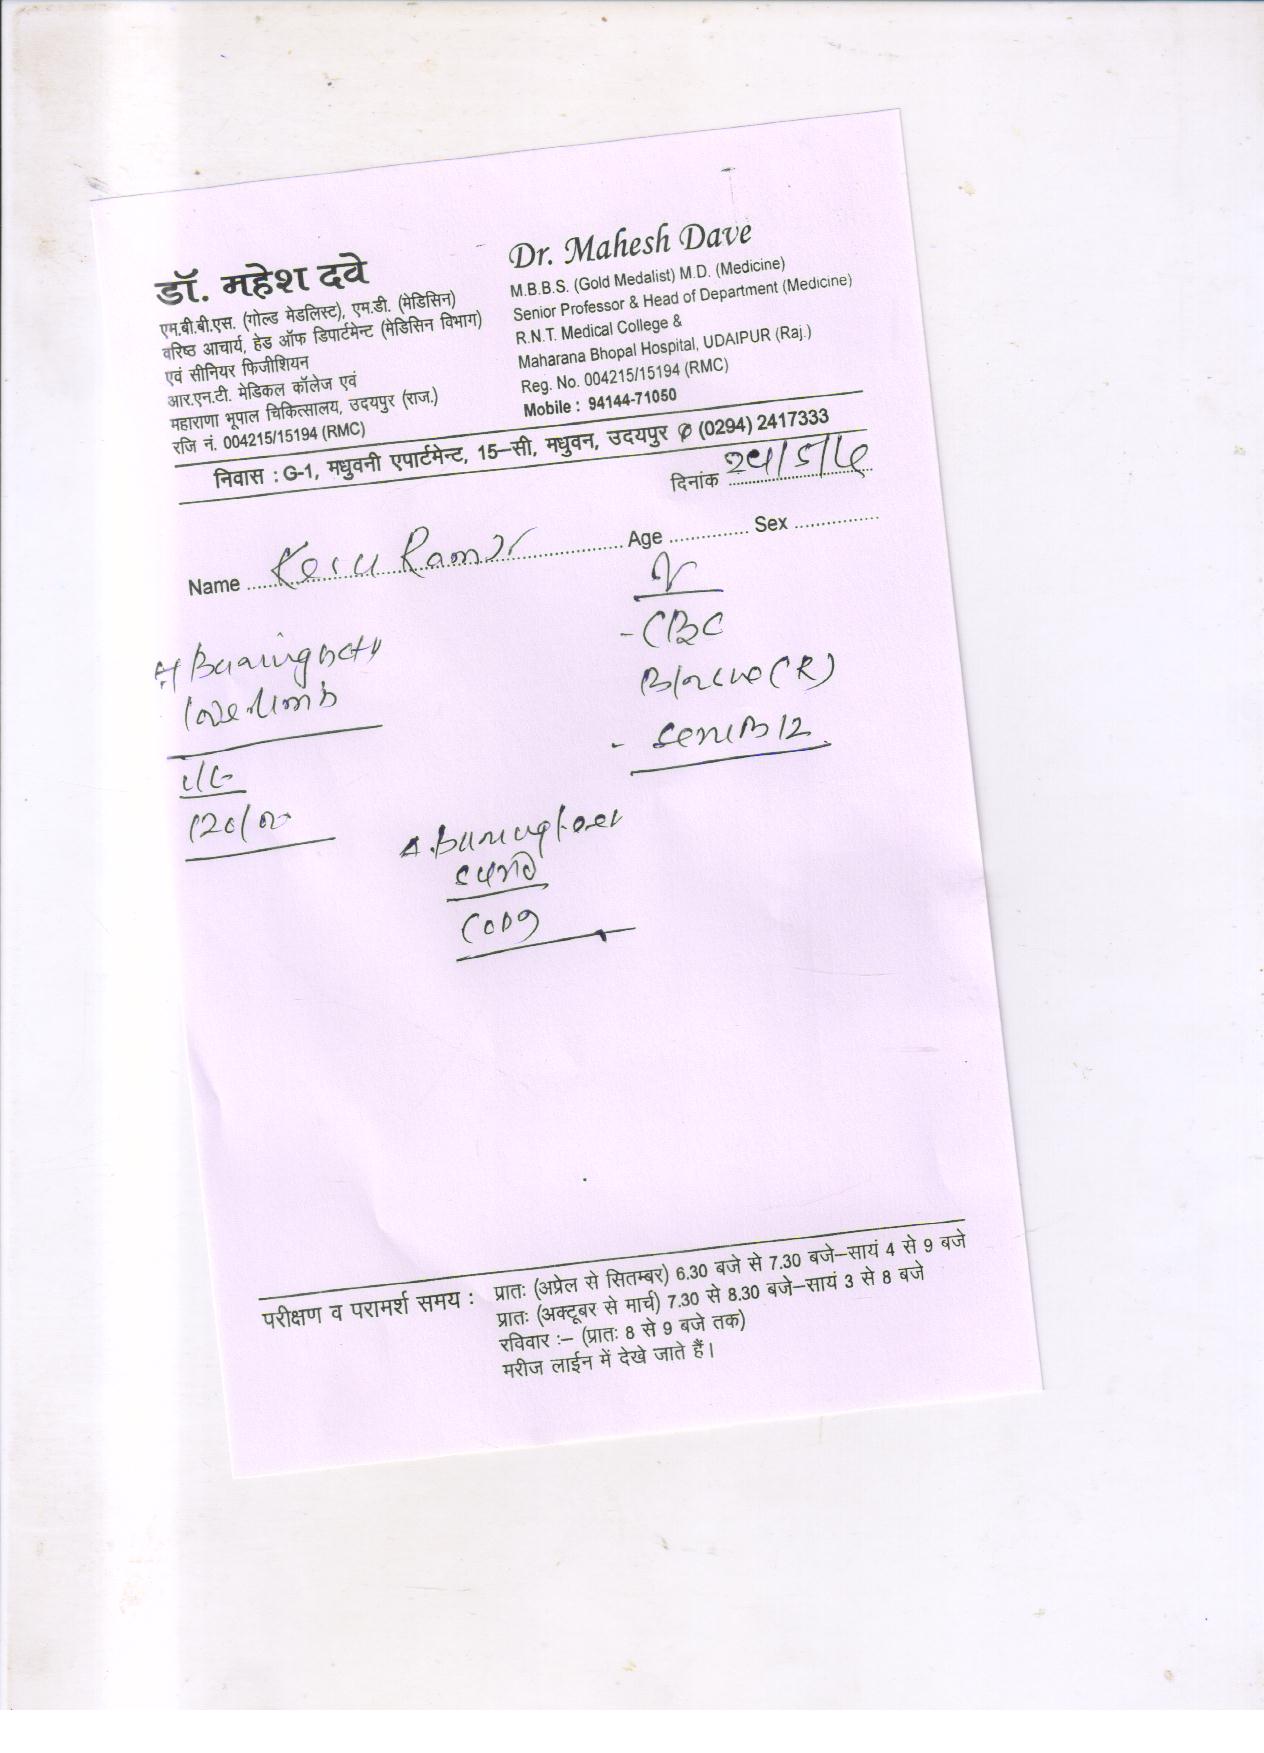 डॉ. महेश दवे
एम.बी.बी.एस. (गोल्ड मेडलिस्ट), एम.डी. (मेडिसिन)
वरिष्ठ आचार्य, हेड ऑफ डिपार्टमेन्ट (मेडिसिन विभाग)
एवं सीनियर फिजीशियन
आर.एन.टी. मेडिकल कॉलेज एवं
महाराणा भूपाल चिकित्सालय, उदयपुर (राज.)
रजि नं. 004215/15194 (RMC)
Dr. Mahesh Dave
M.B.B.S. (Gold Medalist) M.D. (Medicine)
Senior Professor & Head of Department (Medicine)
R.N.T. Medical College &
Maharana Bhopal Hospital, UDAIPUR (Raj.)
Reg. No. 004215/15194 (RMC)
Mobile : 94144-71050
निवास : G-1, मधुवनी एपार्टमेन्ट, 15–सी, मधुवन, उदयपुर ✆ (0294) 2417333
दिनांक
Name Kesu Ram Age Sex
- CBC
(R)
- B12
120/
परीक्षण व परामर्श समय : प्रातः (अप्रेल से सितम्बर) 6.30 बजे से 7.30 बजे–सायं 4 से 9 बजे
प्रातः (अक्टूबर से मार्च) 7.30 से 8.30 बजे–सायं 3 से 8 बजे
रविवार :– (प्रातः 8 से 9 बजे तक)
मरीज लाईन में देखे जाते हैं।